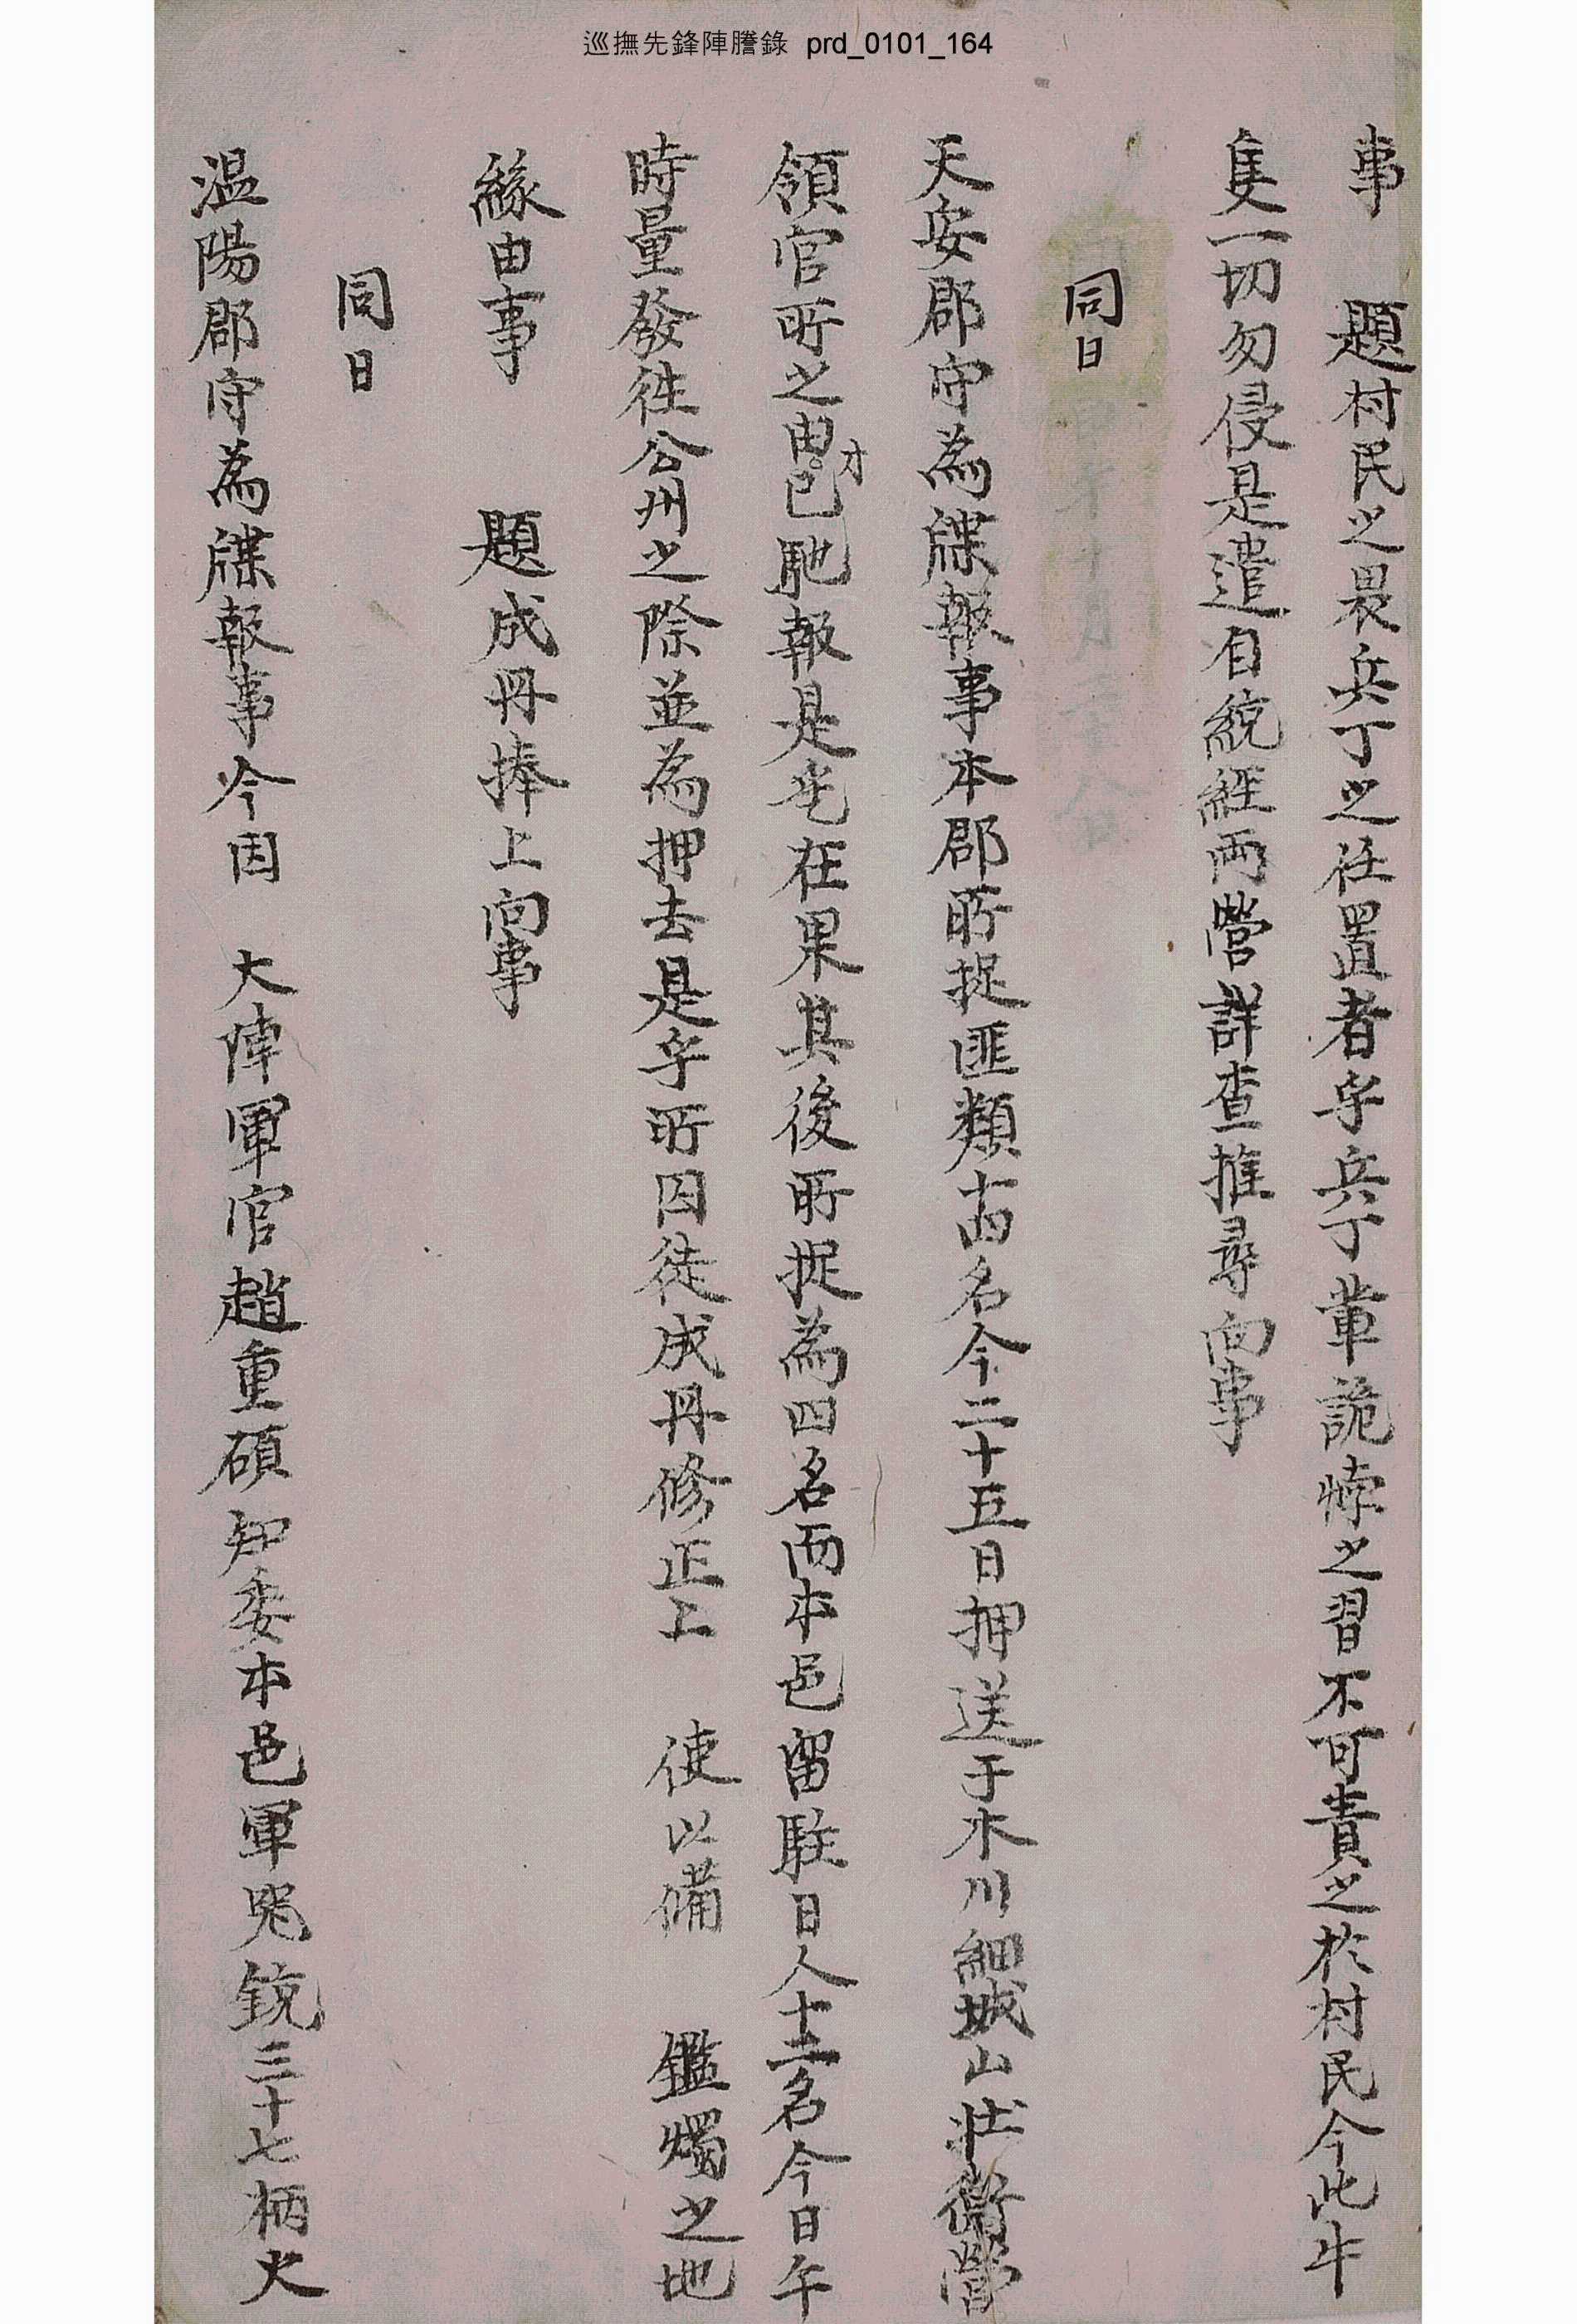 巡撫先鋒陣謄錄 prd_0101_164
事 題村民之畏兵丁之任置者乎兵丁輩詭悖之習不可責之於村民今此牛
隻一切勿侵是遣自統經兩營詳查推尋向事
同日
天安郡守為牒報事本郡所捉匪類十四名今二十五日押送于木川細城山壯衛營
領官所之由才已馳報是乎在果其後所捉為四名而本邑留駐日人十二名今日午
時量發往公州之際並為押去是乎所囚徒成冊修正上 使以備 鑑燭之地
緣由事 題成冊捧上向事
同日
溫陽郡守為牒報事今因 大陣軍官趙重碩知委本邑軍器銃三十七柄火